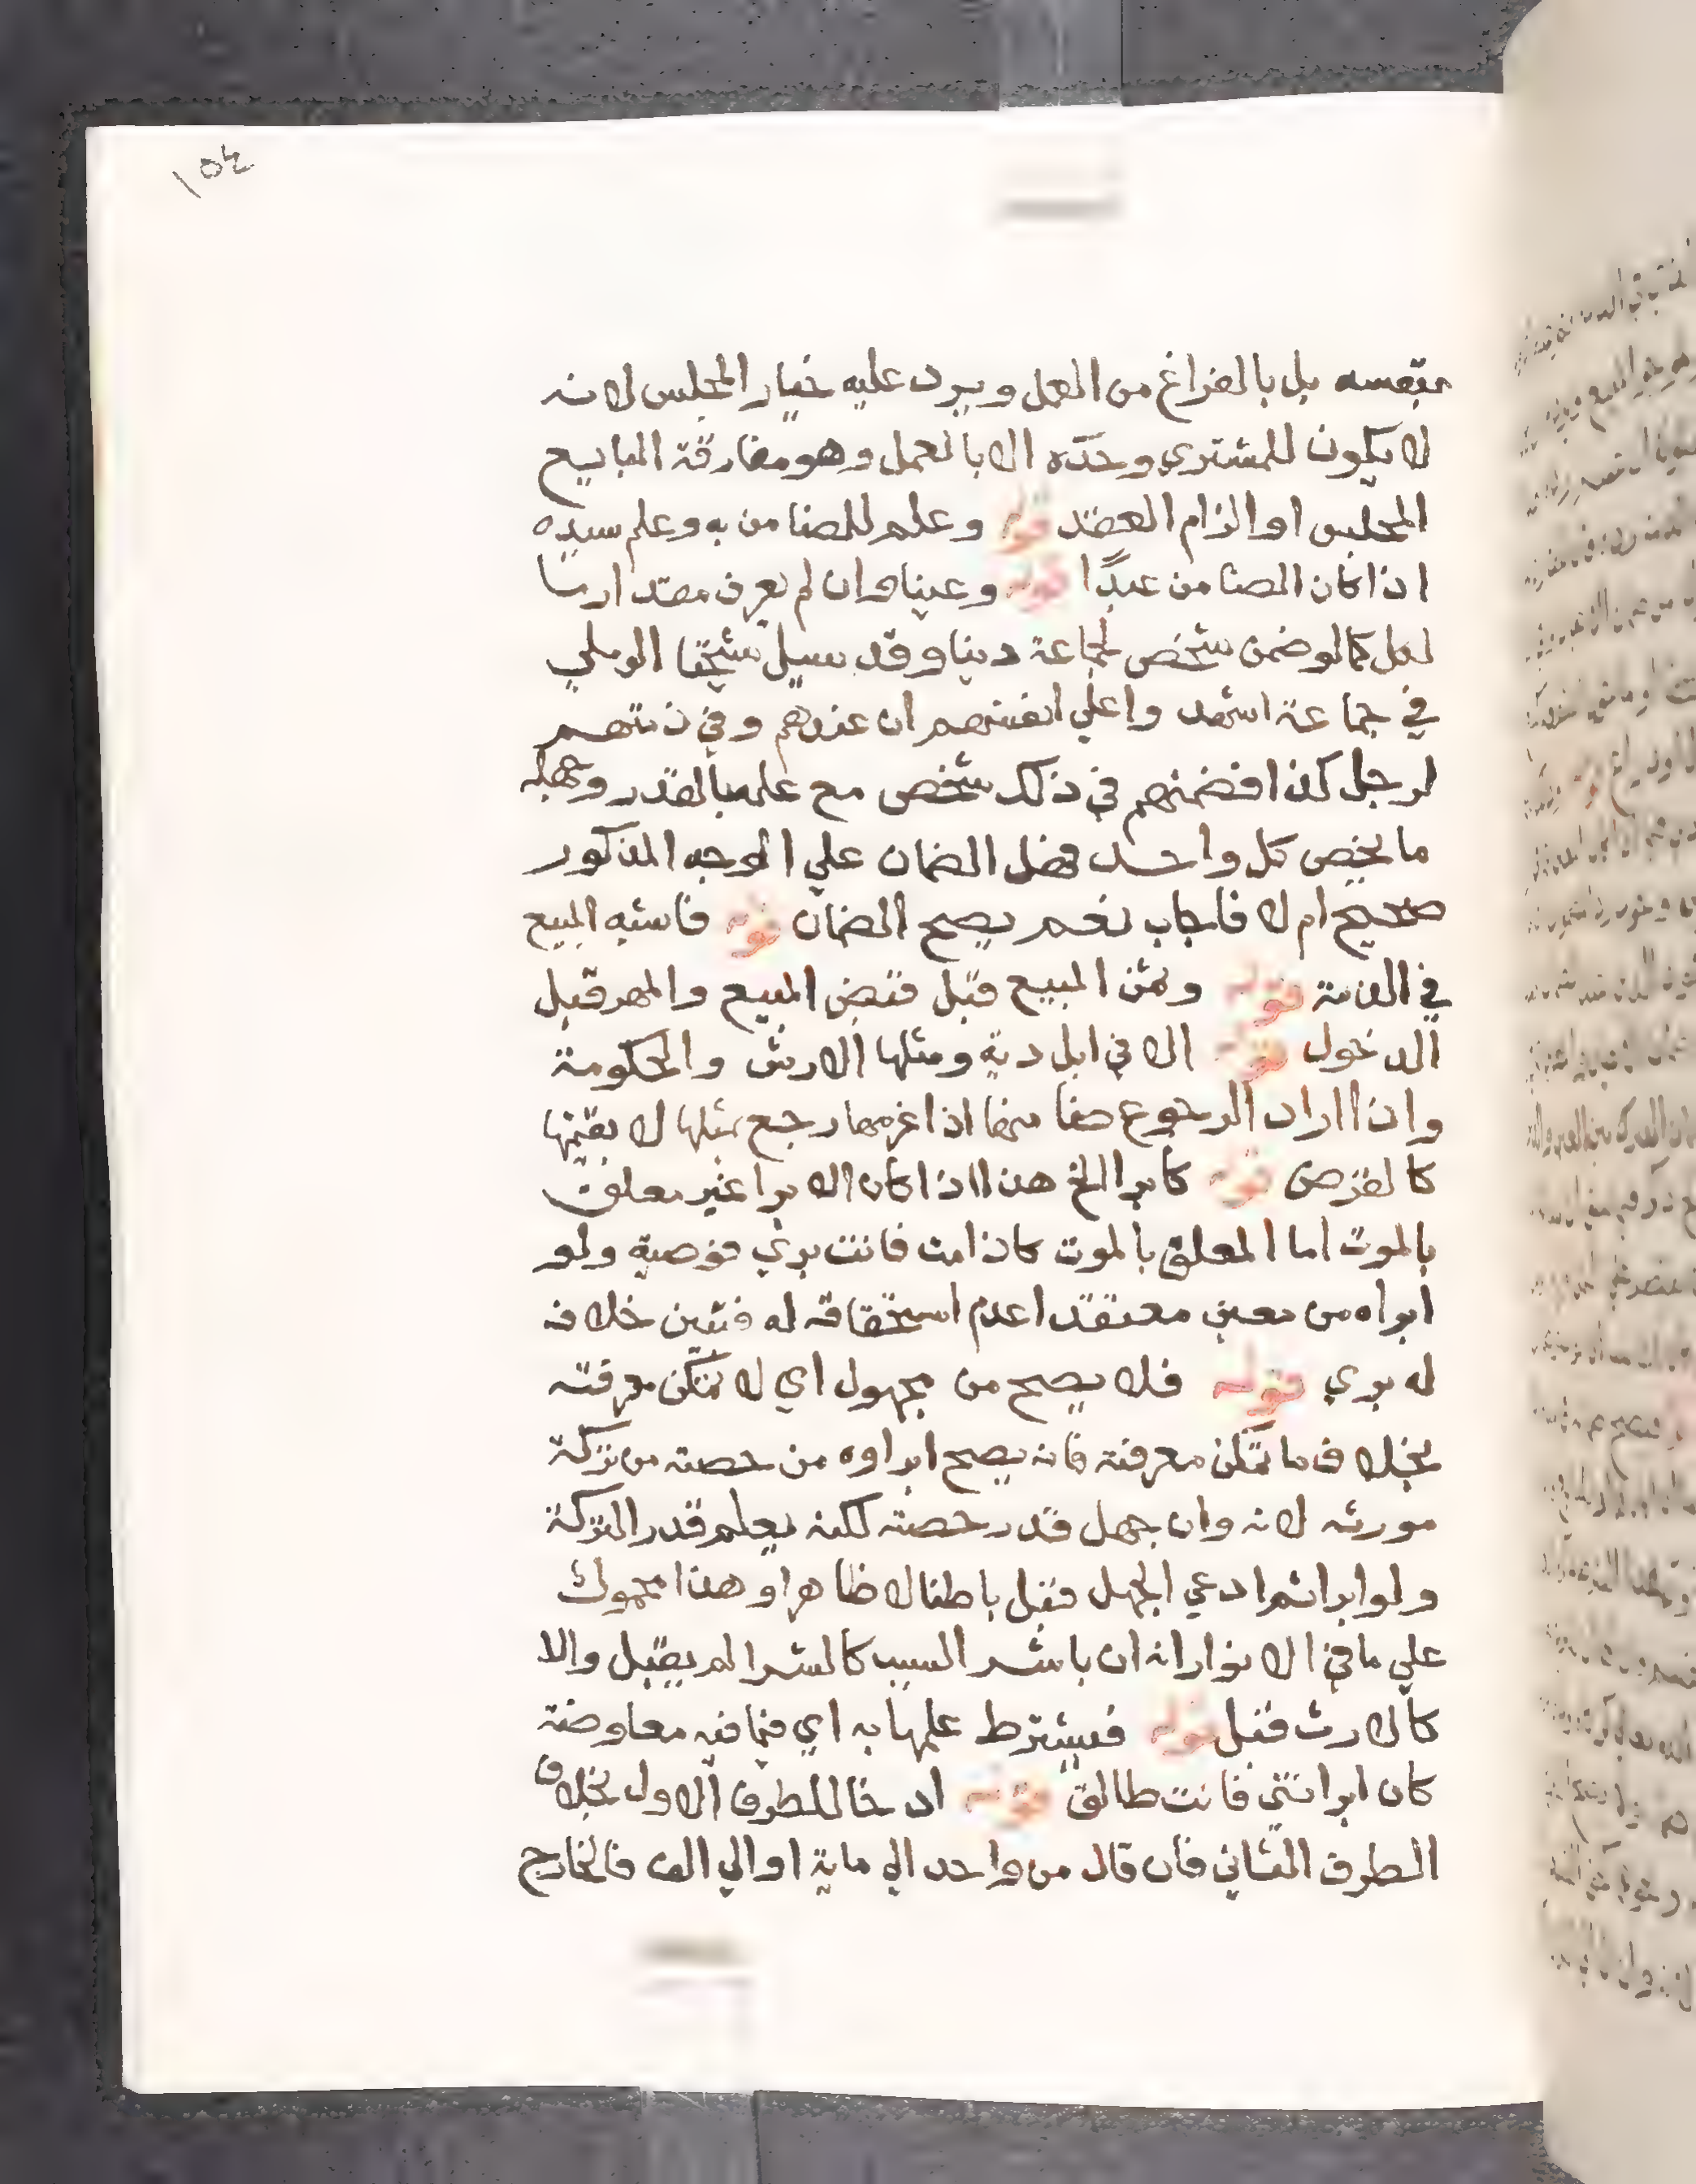 ١٥٤
بنفسه بل بالفراغ من العمل ويرد عليه خيار المجلس لانه
لا يكون للمشتري وحده الا بالعمل وهو مفارقة البايع
المجلس او الزام العقد قوله وعلم للضامن به وعلم سيده
اذا كان الضامن عبدًا قوله وعينا وان لم يعرف مقدار ما
لكل كما لو ضمن شخص لجماعة دينا وقد سيل شيخنا الرملي
في جماعة اشهدوا علي انفسهم ان عندهم وفي ذمتهم
لرجل كذا فضمنهم في ذلك شخص مع علمه بالقدر وجهله
ما يخص كل واحد فهل الضمان علي الوجه المذكور
صحيح ام لا فاجاب نعم يصح الضمان قوله فاشبه المبيع
في الذمة قوله وثمن المبيع قبل قبض المبيع والمهر قبل
الدخول قوله الا في ابل دية ومثلها الارش والحكومة
واذا اراد الرجوع ضامنها اذا غرمها رجع بمثلها لا بقيمتها
كالقرض قوله كابرا الخ هذا اذا كان الابرا غير معلق
بالموت اما المعلق بالموت كاذا مت فانت بري فوصية ولو
ابراه من معين معتقدا عدم استحقاقه له فتبين خلافه
له بري قوله فلا يصح من مجهول اي لا تمكن معرفته
بخلاف ما تمكن معرفته فانه يصح ابراوه من حصته من تركة
مورثه لانه وان جهل قدر حصته لكنه يعلم قدر التركة
ولو ابرا ثم ادعي الجهل قبل باطنا لا ظاهرا وهذا محمول
علي ما في الانوار انه ان باشر السبب كالشرا لم يقبل والا
كالارث قبل قوله فيشترط علمها به اي فيما فيه معاوضة
كان ابراتني فانت طالق قوله ادخالا للطرف الاول بخلاف
الطرف الثاني فان قال من واحد الي ماية او الي الف فالخارج